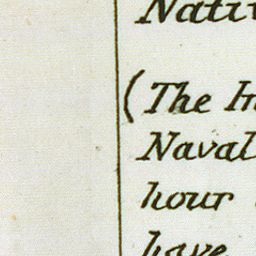 Nati
(The In
Naval
hour
have